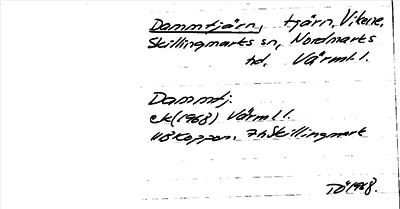 Dammtjärn, tjärn, Vikene,
Skillingmarks sn, Nordmarks
hd. Värml.l.
Dammtj.
ek(1968) Värml.l.
11B Koppom, 7h Skillingmark
TÖ 1968.